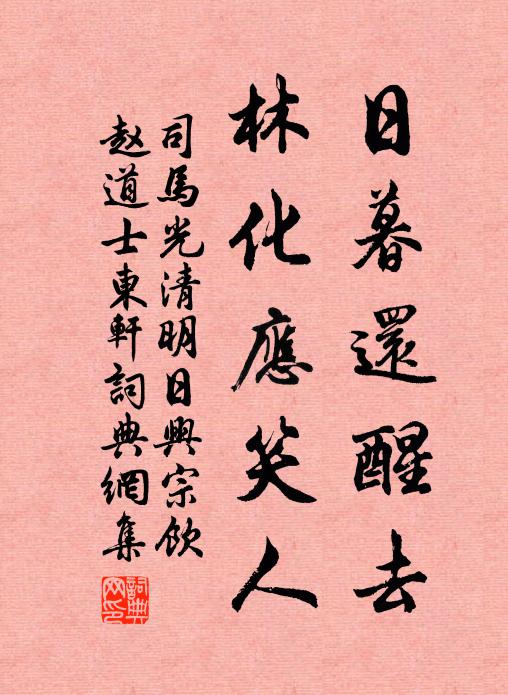 日暮還醒去
林化應笑人
司馬光清明日興宗飲
赵道士東軒詞典網集
詞典网印